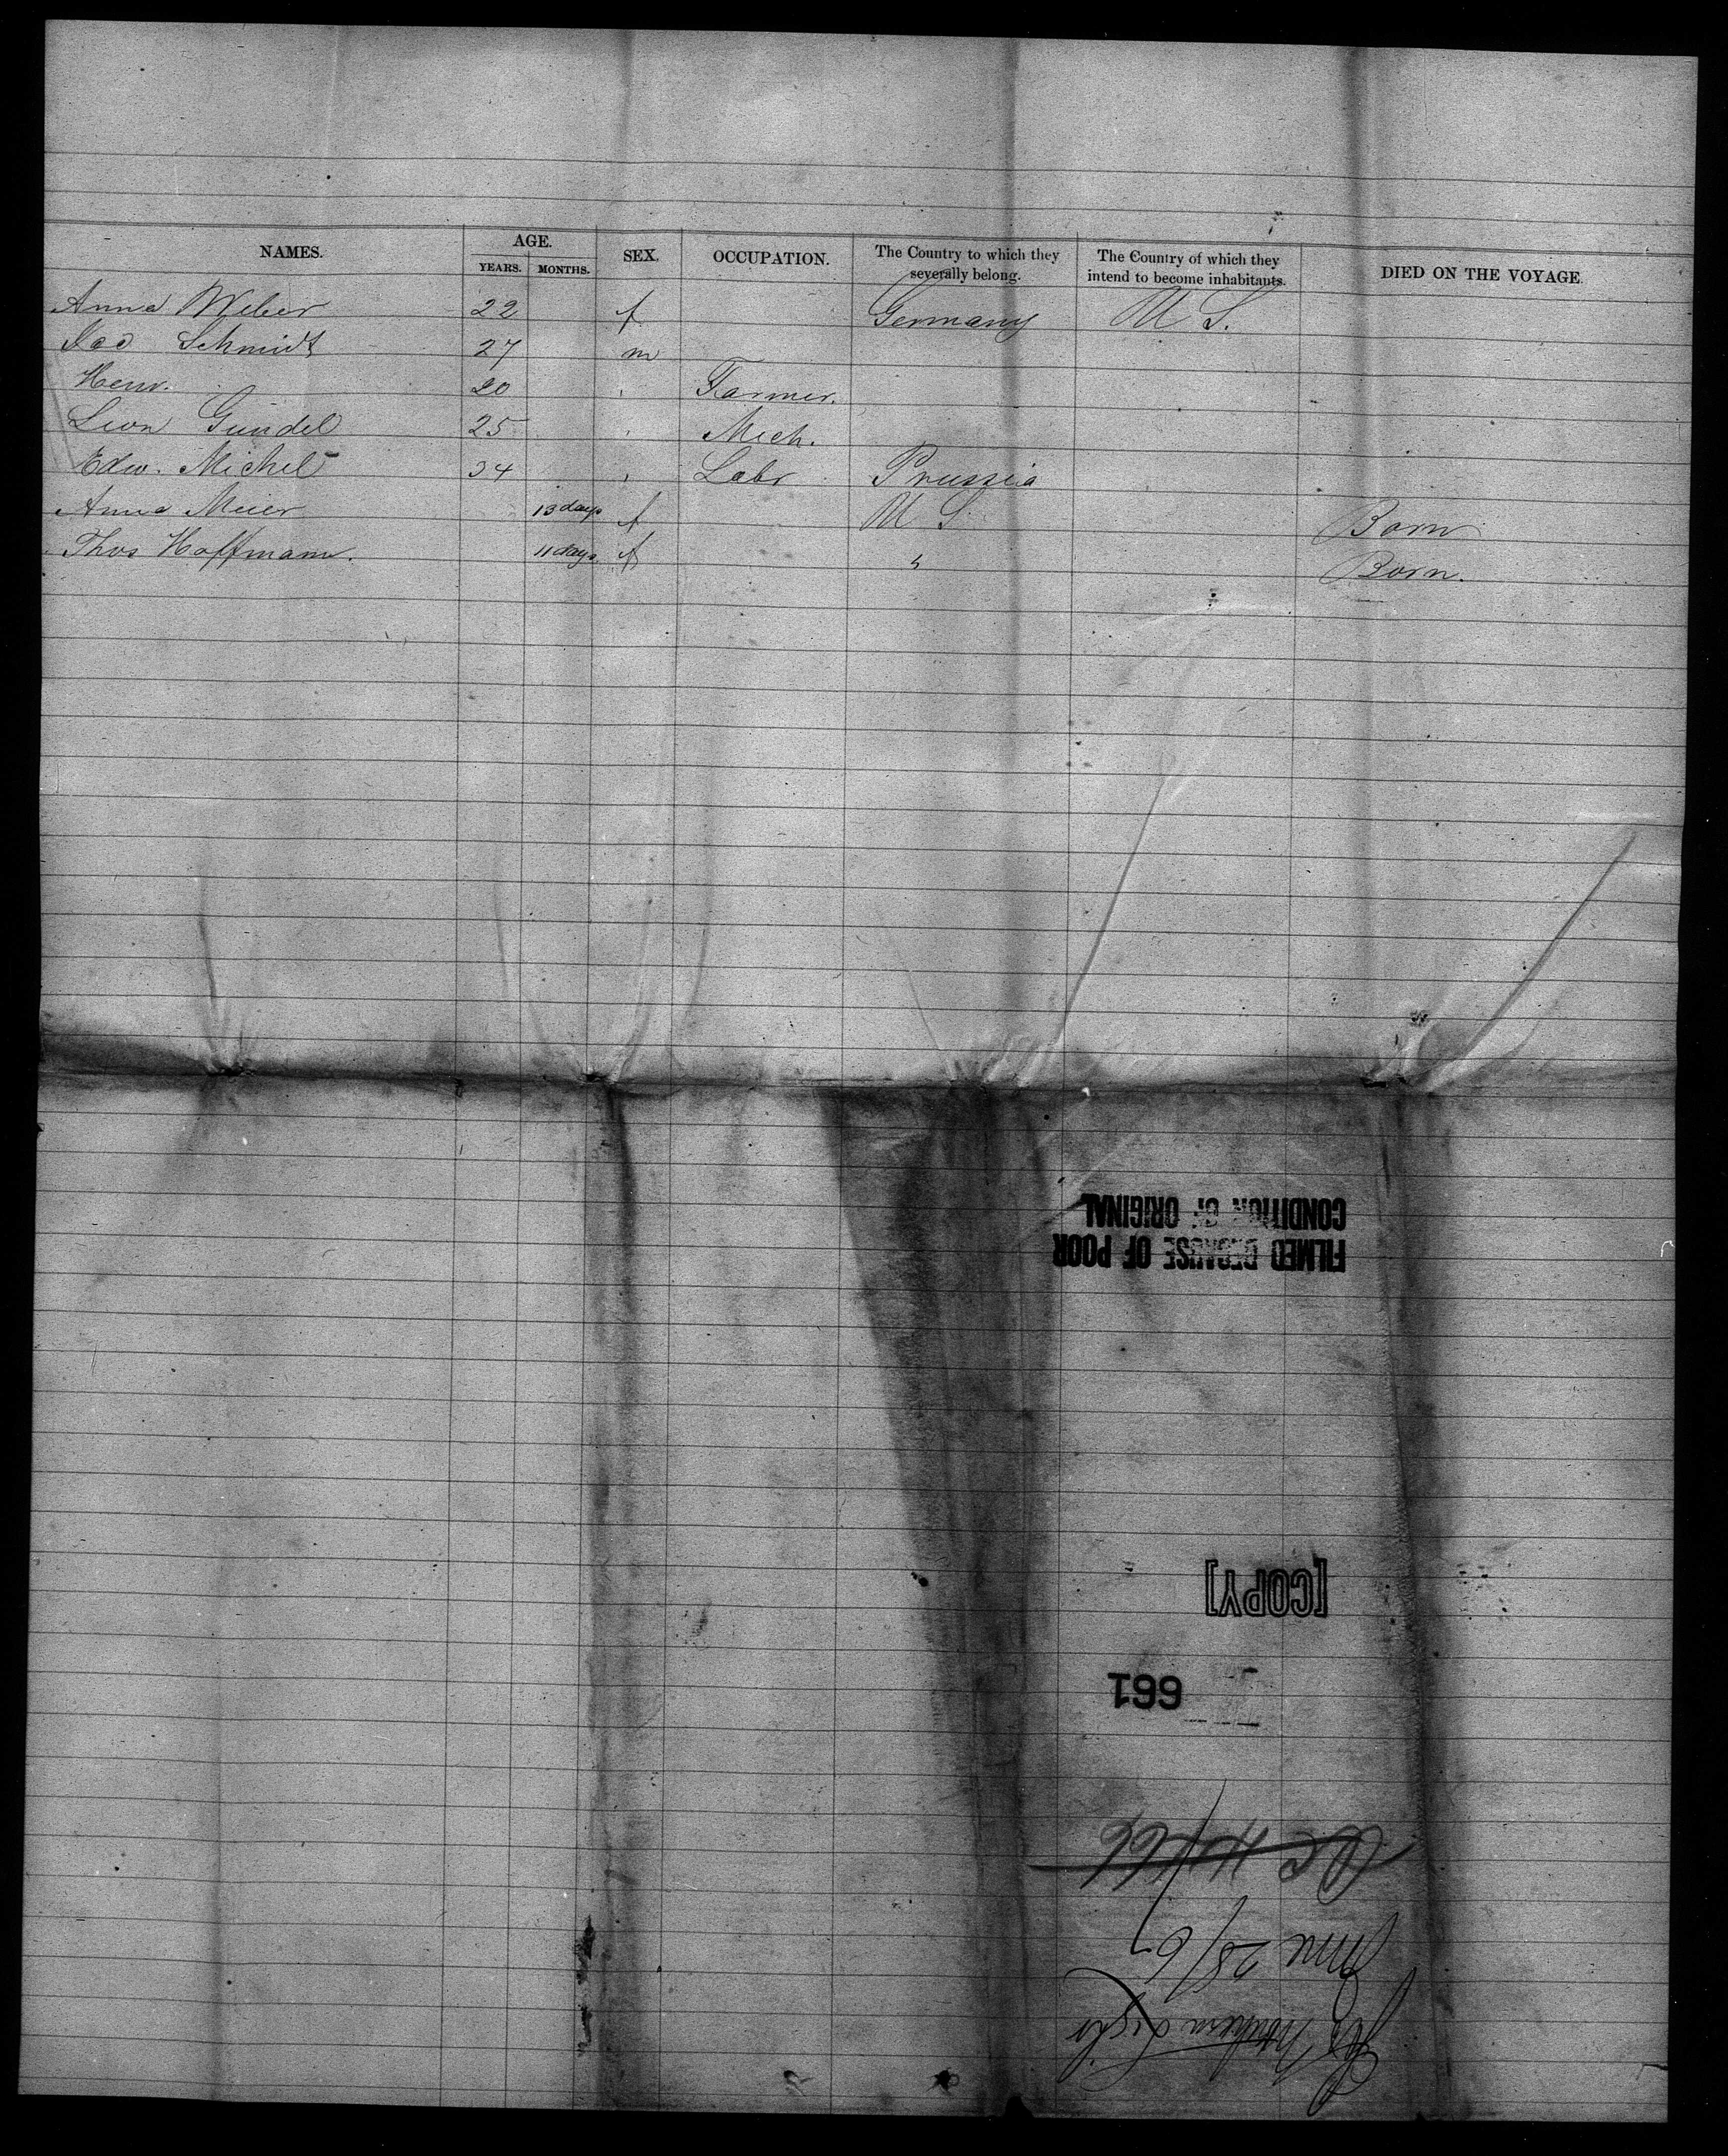 NAMES. AGE. SEX. OCCUPATION. The Country to which they severally belong. The Country of which they intend to become inhabitants. DIED ON THE VOYAGE.
YEARS. MONTHS.
Anna Weber 22 f Germany U S.
Jac Schmidt 27 m
Henr. 20 Farmer.
Leon Gundel 25 Mech.
Edw. Michel 34 Labr Prussia
Anna Meier 13 days f U S Born
Thos Hoffmann. 11 days f " Born.
FILMED BECAUSE OF POOR
CONDITION OF ORIGINAL
[COPY]
661
Northern Light
June 28/67